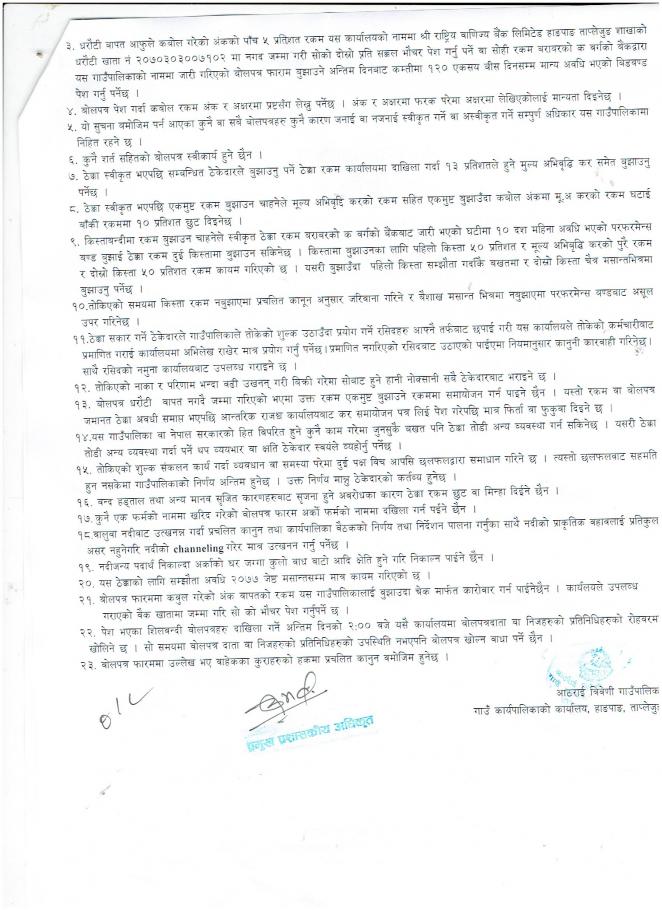 ३. धरौटी बापत आफुले कबोल गरेको अंकको पाँच ५ प्रतिशत रकम यस कार्यालयको नाममा श्री राष्ट्रिय बाणिज्य बैंक लिमिटेड हाङपाङ ताप्लेजुङ शाखाको
धरौटी खाता नं २०७०३०३००७१०२ मा नगद जम्मा गरी सोको दोस्रो प्रति सक्कल भौचर पेश गर्नु पर्ने वा सोही रकम बराबरको क बर्गको बैंकद्वारा
यस गाउँपालिकाको नाममा जारी गरिएको बोलपत्र फाराम बुझाउने अन्तिम दिनबाट कम्तीमा १२० एकसय बीस दिनसम्म मान्य अवधि भएको बिडबण्ड
पेश गर्नु पर्नेछ ।
४. बोलपत्र पेश गर्दा कबोल रकम अंक र अक्षरमा प्रष्टसँग लेख्नु पर्नेछ । अंक र अक्षरमा फरक परेमा अक्षरमा लेखिएकोलाई मान्यता दिइनेछ ।
५. यो सुचना बमोजिम पर्न आएका कुनै वा सबै बोलपत्रहरु कुनै कारण जनाई वा नजनाई स्वीकृत गर्ने वा अस्वीकृत गर्ने सम्पुर्ण अधिकार यस गाउँपालिकामा
निहित रहने छ ।
६. कुनै शर्त सहितको बोलपत्र स्वीकार्य हुने छैन ।
७. ठेक्का स्वीकृत भएपछि सम्बन्धित ठेकेदारले बुझाउनु पर्ने ठेक्का रकम कार्यालयमा दाखिला गर्दा १३ प्रतिशतले हुने मुल्य अभिवृद्धि कर समेत बुझाउनु
पर्नेछ ।
८. ठेक्का स्वीकृत भएपछि एकमुष्ट रकम बुझाउन चाहनेले मूल्य अभिवृद्दि करको रकम सहित एकमुष्ट बुझाउँदा कबोल अंकमा मू.अ करको रकम घटाई
बाँकी रकममा १० प्रतिशत छुट दिइनेछ ।
९. किस्ताबन्दीमा रकम बुझाउन चाहनेले स्वीकृत ठेक्का रकम बराबरको क बर्गको बैंकबाट जारी भएको घटीमा १० दश महिना अवधि भएको परफरमेन्स
बण्ड बुझाई ठेक्का रकम दुई किस्तामा बुझाउन सकिनेछ । किस्तामा बुझाउनका लागि पहिलो किस्ता ५० प्रतिशत र मूल्य अभिबृद्दि करको पुरै रकम
र दोस्रो किस्ता ५० प्रतिशत रकम कायम गरिएको छ । यसरी बुझाउँदा पहिलो किस्ता सम्झौता गर्दाकै बखतमा र दोस्रो किस्ता चैत्र मसान्तभित्रमा
बुझाउनु पर्नेछ ।
१०.तोकिएको समयमा किस्ता रकम नबुझाएमा प्रचलित कानून अनुसार जरिबाना गरिने र बैशाख मसान्त भित्रमा नबुझाएमा परफरमेन्स बण्डबाट असूल
उपर गरिनेछ ।
११.ठेक्का सकार गर्ने ठेकेदारले गाउँपालिकाले तोकेको शुल्क उठाउँदा प्रयोग गर्ने रसिदहरु आफ्नै तर्फबाट छपाई गरी यस कार्यालयले तोकेको कर्मचारीबाट
प्रमाणित गराई कार्यालयमा अभिलेख राखेर मात्र प्रयोग गर्नु पर्नेछ।प्रमाणित नगरिएको रसिदबाट उठाएको पाईएमा नियमानुसार कानुनी कारबाही गरिनेछ।
साथै रसिदको नमुना कार्यालयबाट उपलब्ध गराइने छ ।
१२. तोकिएको नाका र परिणाम भन्दा बढी उत्खनन् गरी बिक्री गरेमा सोबाट हुने हानी नोक्सानी सबै ठेकेदारबाट भराइने छ ।
१३. बोलपत्र धरौटी बापत नगदै जम्मा गरिएको भएमा उक्त रकम एकमुष्ट बुझाउने रकममा समायोजन गर्न पाइने छैन । यस्तो रकम वा बोलपत्र
जमानत ठेक्का अवधी समाप्त भएपछि आन्तरिक राजश्व कार्यालयबाट कर समायोजन पत्र लिई पेश गरेपछि मात्र फिर्ता वा फुकुवा दिइने छ ।
१४.यस गाउँपालिका वा नेपाल सरकारको हित बिपरित हुने कुनै काम गरेमा जुनसुकै बखत पनि ठेक्का तोडी अन्य व्यवस्था गर्न सकिनेछ । यसरी ठेक्का
तोडी अन्य व्यवस्था गर्दा पर्ने थप व्ययभार वा क्षति ठेकेदार स्वयंले व्यहोर्नु पर्नेछ ।
१५. तोकिएको शुल्क संकलन कार्य गर्दा व्यवधान वा समस्या परेमा दुई पक्ष बिच आपसि छलफलद्वारा समाधान गरिने छ । त्यस्तो छलफलबाट सहमति
हुन नसकेमा गाउँपालिकाको निर्णय अन्तिम हुनेछ । उक्त निर्णय मान्नु ठेकेदारको कर्तब्य हुनेछ ।
१६. बन्द हड्ताल तथा अन्य मानव सृजित कारणहरुबाट सृजना हुने अबरोधका कारण ठेक्का रकम छुट वा मिन्हा दिईने छैन ।
१७.कुनै एक फर्मको नाममा खरिद गरेको बोलपत्र फारम अर्को फर्मको नाममा दाखिला गर्न पईने छैन ।
१८.बालुवा नदीबाट उत्खनन्न गर्दा प्रचलित कानुन तथा कार्यपालिका बैठकको निर्णय तथा निर्देशन पालना गर्नुका साथै नदीको प्राकृतिक बहावलाई प्रतिकुल
असर नहुनेगरि नदीको channeling गरेर मात्र उत्खनन गर्नु पर्नेछ ।
१९. नदीजन्य पदार्थ निकाल्दा अर्काको घर जग्गा कुलो बाध बाटो आदि क्षेति हुने गरि निकाल्न पाईने छैन ।
२०. यस ठेक्काको लागि सम्झौता अवधि २०७७ जेष्ठ मसान्तसम्म मात्र कायम गरिएको छ ।
२१. बोलपत्र फारममा कबुल गरेको अंक बापतको रकम यस गाउँपालिकालाई बुझाउदा चेक मार्फत कारोबार गर्न पाईनेछैन । कार्यलयले उपलब्ध
गराएको बैंक खातामा जम्मा गरि सो को भौचर पेश गर्नुपर्ने छ ।
२२. पेश भएका शिलबन्दी बोलपत्रहरु दाखिला गर्ने अन्तिम दिनको २:०० बजे यसै कार्यालयमा बोलपत्रदाता वा निजहरुको प्रतिनिधिहरुको रोहबरम
खोलिने छ । सो समयमा बोलपत्र दाता वा निजहरुको प्रतिनिधिहरुको उपस्थिति नभएपनि बोलपत्र खोल्न बाधा पर्ने छैन ।
२३. बोलपत्र फारममा उल्लेख भए बाहेकका कुराहरुको हकमा प्रचलित कानुन बमोजिम हुनेछ ।
आठराई त्रिवेणी गाउँपालिक
गाउँ कार्यपालिकाको कार्यालय, हाङपाङ, ताप्लेजुङ
प्रमुख प्रशासकीय अधिकृत